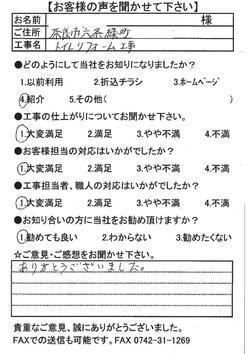 【お客様の声を聞かせて下さい】
お名前 様
ご住所 奈良市六条緑町
工事名 トイレリフォーム工事
●どのようにして当社をお知りになりましたか？
1.以前利用 2.折込チラシ 3.ホームページ
4.紹介 5.その他( )
●工事の仕上がりについてお聞かせ下さい。
1.大変満足 2.満足 3.やや不満 4.不満
●お客様担当の対応はいかがでしたか？
1.大変満足 2.満足 3.やや不満 4.不満
●工事担当者、職人の対応はいかがでしたか？
1.大変満足 2.満足 3.やや不満 4.不満
●お知り合いの方に当社をお勧め頂けますか？
1.勧めても良い 2.わからない 3.勧めたくない
☆ご意見・ご感想をお聞かせ下さい。
ありがとうございました。
貴重なご意見、誠にありがとうございました。
FAXでの送信も可能です。FAX 0742-31-1269